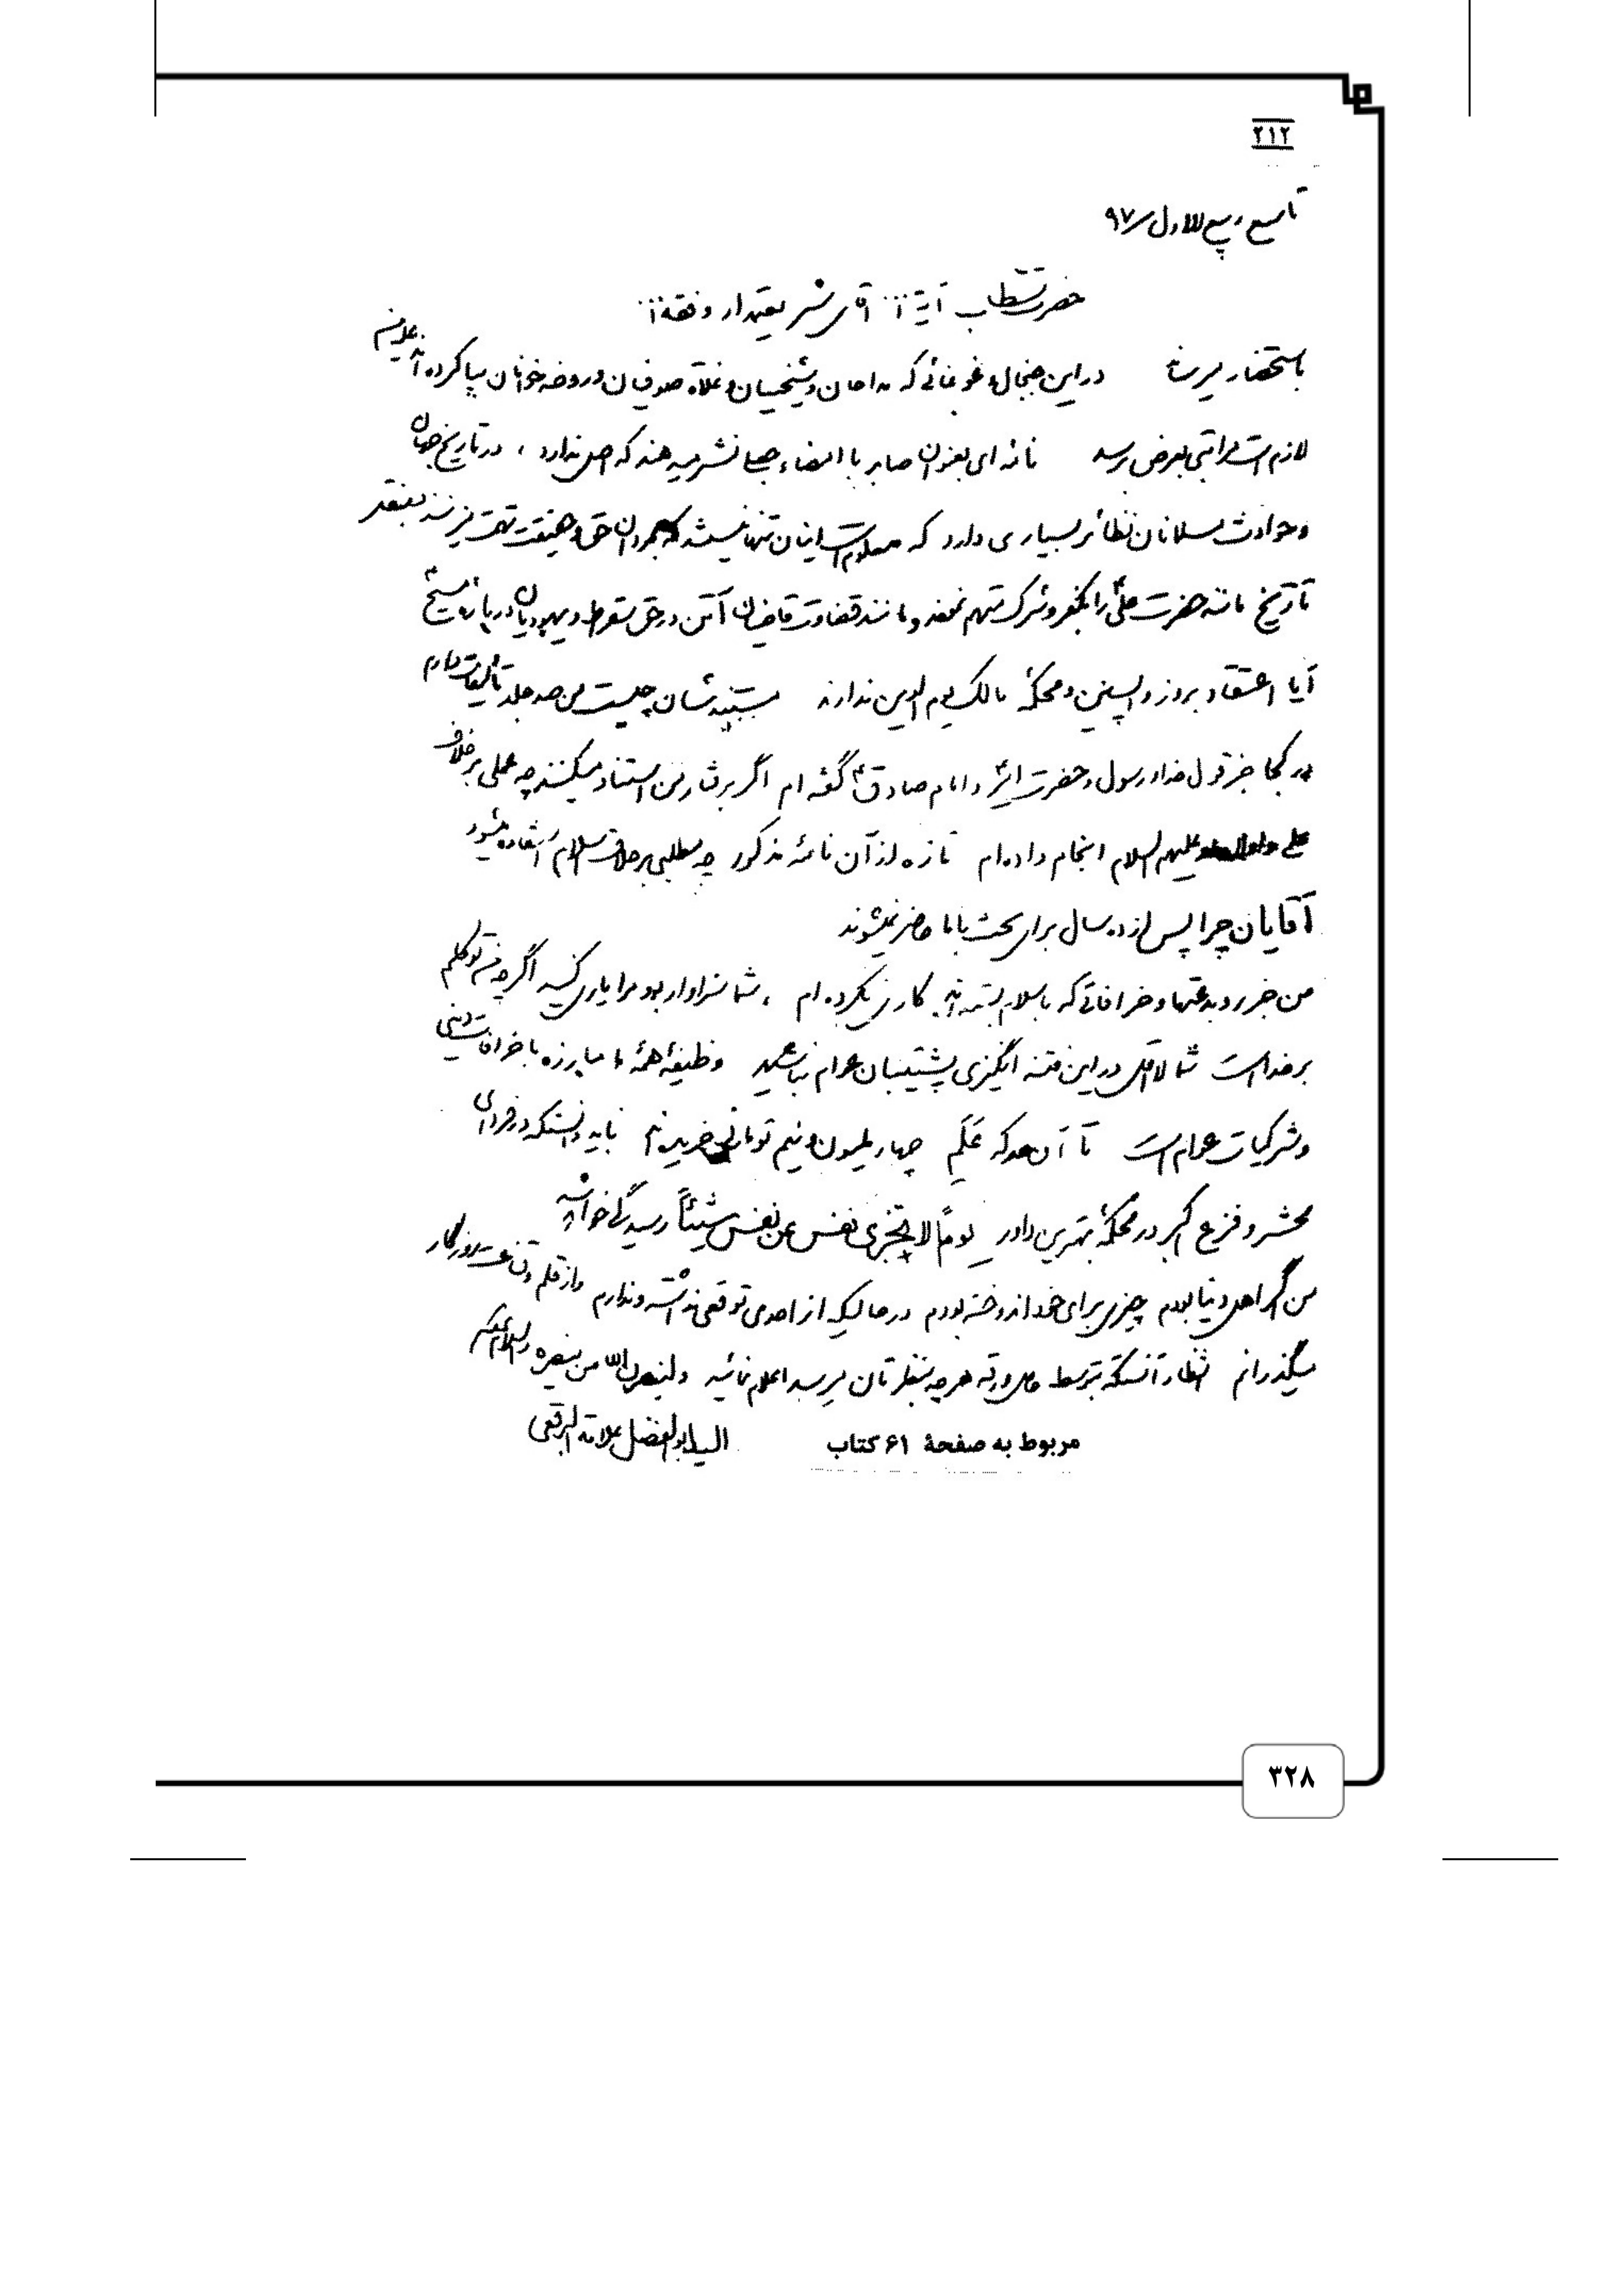 ۲۱۲
تاسع ربیع الاول ۹۷
حضرت مستطاب آیة الله آقای شریعتمدار وفقه الله
باستحضار میرساند در این جنجال و غوغائی که مداحان و شیخیان و غلاة صوفیان و روضه‌خوانان بپا کرده‌اند
لازم است مراتبی بعرض برسد نامه‌ای بعنوان صابر با امضاء جعلی نشر میدهند که اصلی ندارد ، در تاریخ جهان
و حوادث مسلمانان نظائر بسیاری دارد که معلوم است اینان تنها نیستند که بمردان حق و حقیقت تهمت میزنند
تاریخ مانند حضرت علی را بکفر و شرک متهم نمودند و مانند قضاوت قاضیان آتن در حق سقراط و یهودیان درباره مسیح
آیا اعتقاد بروز واپسین و محکمهٔ مالک یوم الدین ندارند مستندشان چیست من صد جلد تألیفات دارم
در کجا جز قول خدا و رسول و حضرت امیر و امام صادق گفته‌ام اگر برفتار من استناد میکنند چه عملی برخلاف
علی علیهم السلام انجام داده‌ام تازه از آن نامهٔ مذکور چه مطلبی برخلاف اسلام استفاده میشود
آقایان چرا پس از ده سال برای بحث با ما حاضر نمیشوند
من جز رد بدعتها و خرافاتی که باسلام بسته‌اند کاری نکرده‌ام ، شما سزاوار بود مرا یاری کنید اگرچه من توکلم
بر خدا است شما لااقل در این فتنه انگیزی پشتیبان عوام نباشید وظیفهٔ همهٔ ما مبارزه با خرافات دینی
و شرکیات عوام است تا آن حد که عَلَم چهار ملیون و نیم تومانی خریدند باید دانست که در فردای
محشر و فزع اکبر در محکمهٔ بهترین داور یوماً لا تجزی نفس عن نفس شیئاً رسیدگی خواهد شد
من اگر اهل دنیا بودم چیزی برای خود اندوخته بودم در حالیکه از احدی توقعی نداشته و ندارم و از قلم و قناعت روزگار
میگذرانم انتظار آنستکه توسط حامل ورقه هرچه بنظرتان میرسد اعلام نمائید ولینصرن الله من ینصره والسلام علیکم
السید ابوالفضل علامه البرقعی
مربوط به صفحهٔ ۶۱ کتاب
۳۲۸